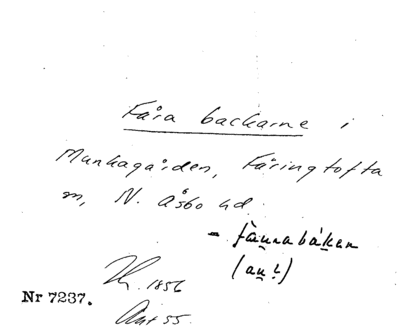 Fåra backarne i
Munkagården, Färingtofta
sn, N. Åsbo hd.
- fåunabákan
(au̲ ?)
1856
Nr 7237.
Ant 55.